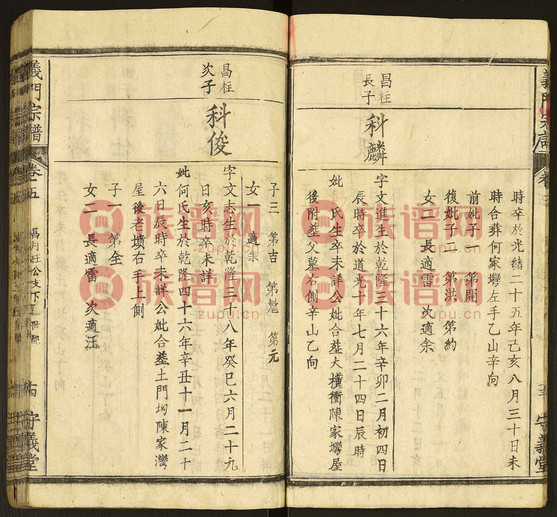 義門宗譜
卷五
守義堂
時卒於光緒二十五年乙亥八月三十日未
時合葬何家塆左手乙山辛向
前妣子一 第開
復妣子二 第洪 第約
女二 長適雷 次適余
昌柱
長子
科麟
字文進生於乾隆三十六年辛卯二月初四日
辰時卒於道光十年七月二十四日辰時
妣 氏生卒未詳公妣合葬大橫衝陳家塆屋
後附葬父墓右側辛山乙向
子三 第吉 第魁 第元
女一 適余
昌柱
次子
科俊
字文志生於乾隆三十八年癸巳六月二十九
日亥時卒未詳
妣何氏生於乾隆四十六年辛丑十一月二十
六日辰時卒未詳公妣合葬土門坳陳家灣
屋後老墳右手上側
子一 第全
女二 長適雷 次適汪
義門宗譜
卷五
守義堂
族譜网
zupu.cn